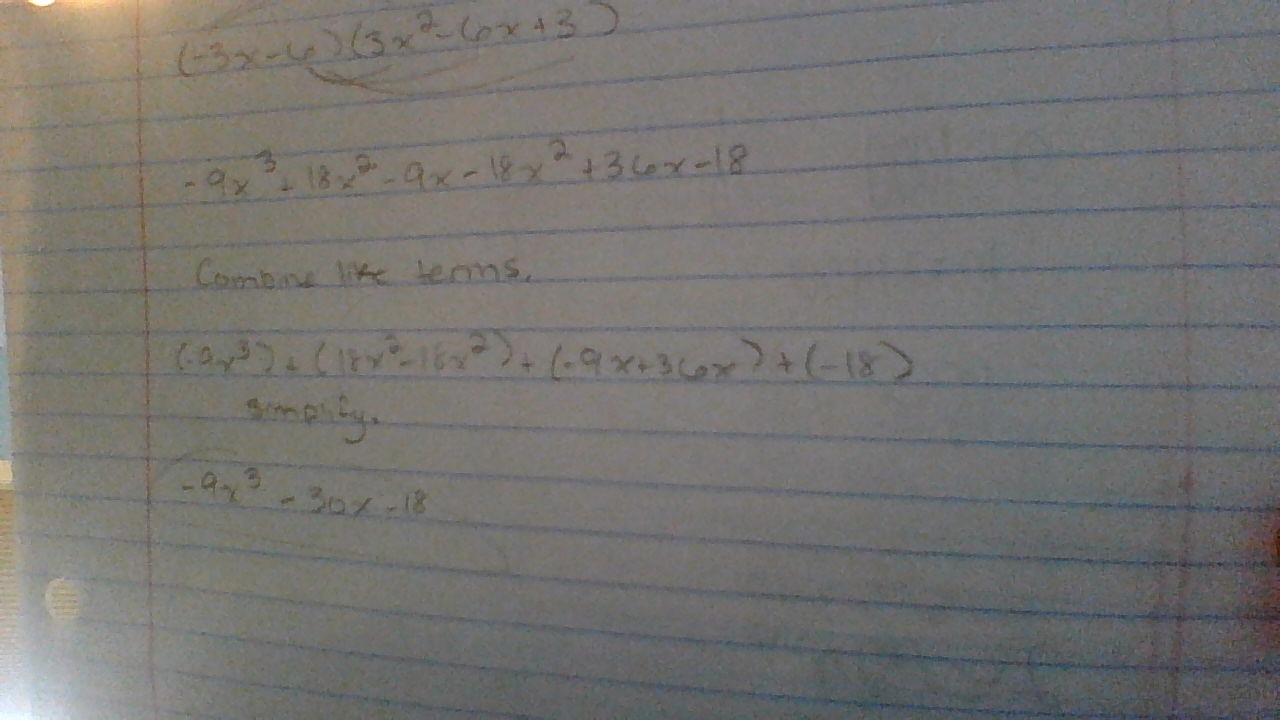 (-3x-6)(3x²-6x+3)
-9x³+18x²-9x-18x²+36x-18
Combine like terms.
(-9x³)+(18x²-18x²)+(-9x+36x)+(-18)
simplify.
-9x³-30x-18